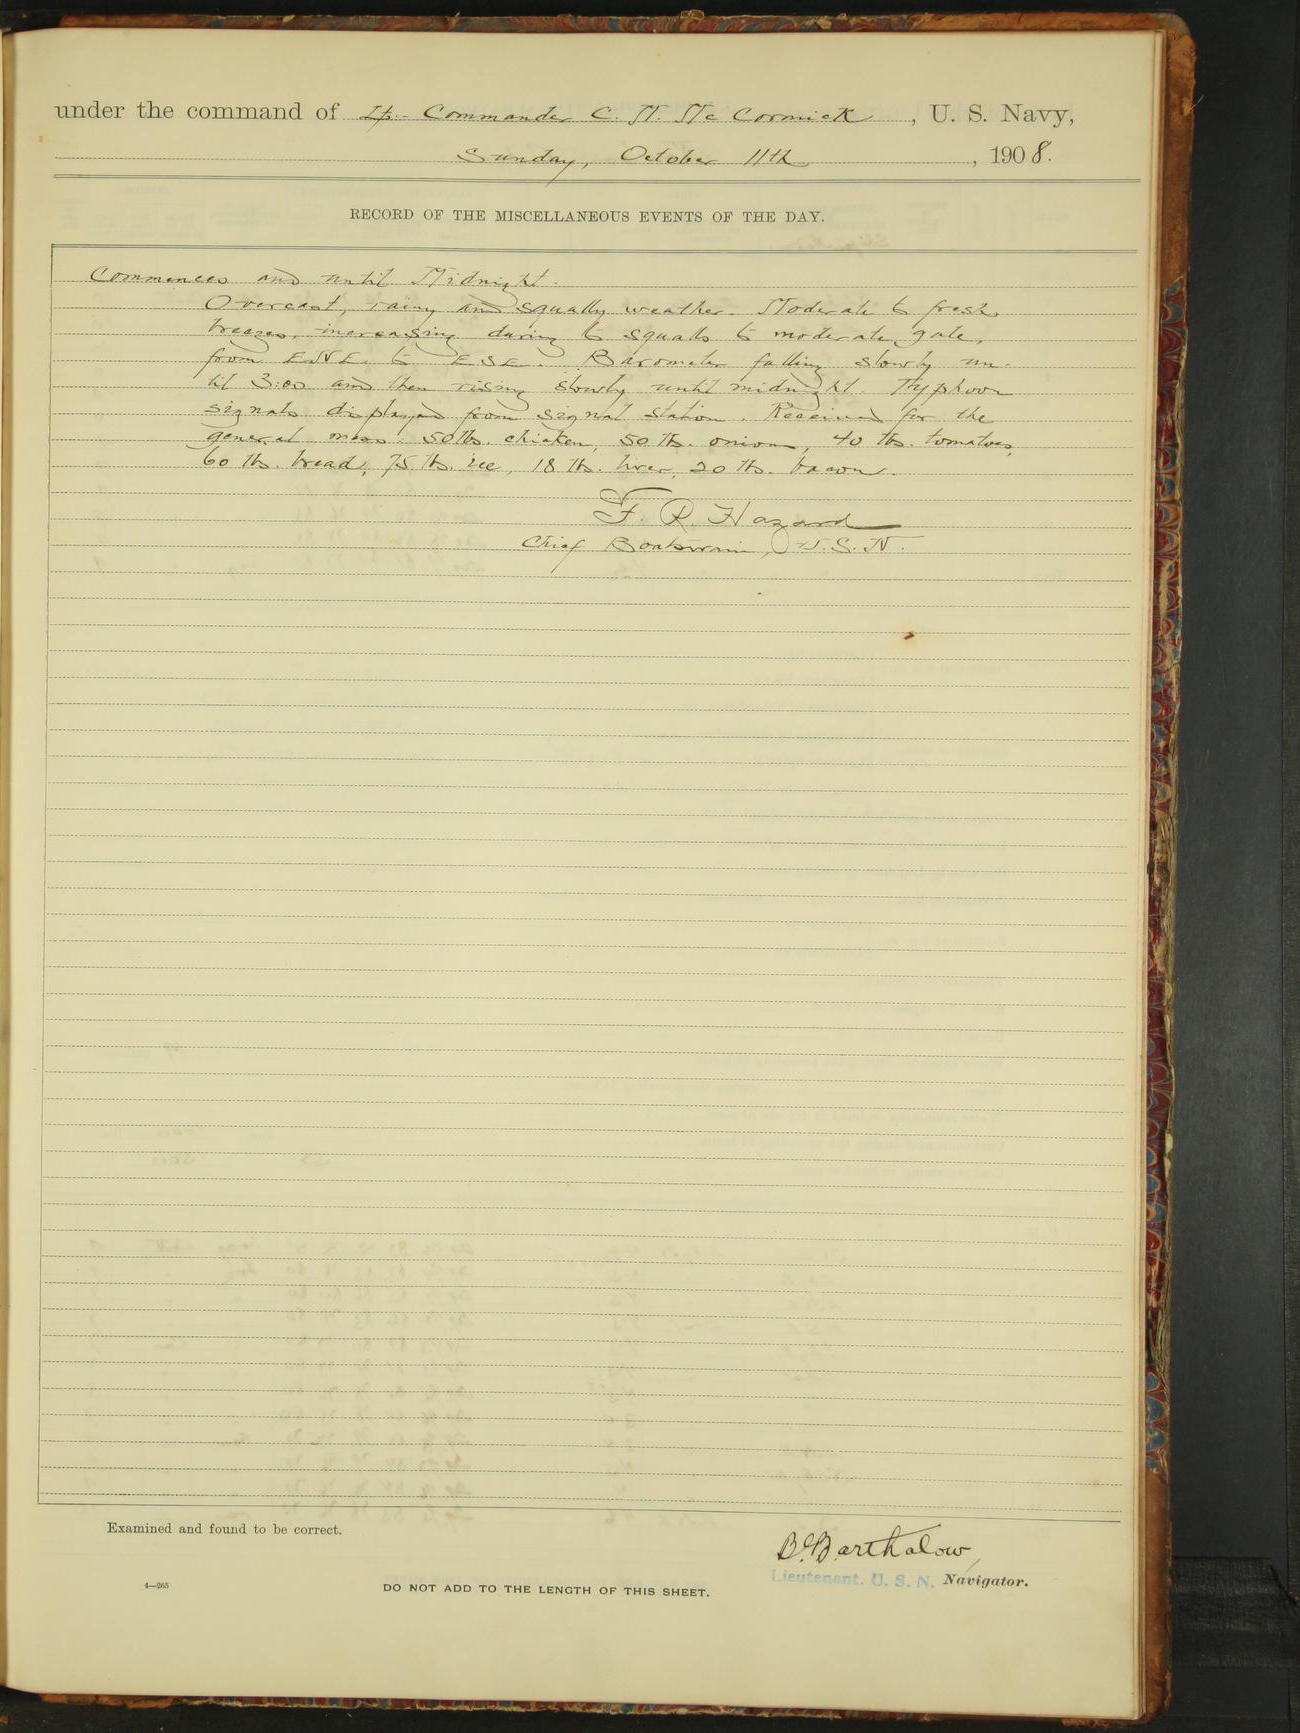 under the command of Lt. Commander C. M. Mc Cormick, U. S. Navy,
Sunday, October 11th, 1908.
RECORD OF THE MISCELLANEOUS EVENTS OF THE DAY.
Commences and until Midnight.
Overcast, rainy and squally weather. Moderate to fresh
breezes, increasing during to squalls to moderate gale,
from ENE. to ESE. Barometer falling slowly un-
til 3:00 and then rising slowly until midnight. Typhoon
signals displayed from signal station. Received for the
general mess: 50 lbs. chicken, 50 lbs. onions, 40 lbs. tomatoes,
60 lbs. bread, 75 lbs. ice, 18 lbs. liver, 20 lbs. bacon.
F. R. Hazard
Chief Boatswain, U.S.N.
Examined and found to be correct.
Barthalow,
Lieutenant. U. S. N. Navigator.
4—265
DO NOT ADD TO THE LENGTH OF THIS SHEET.